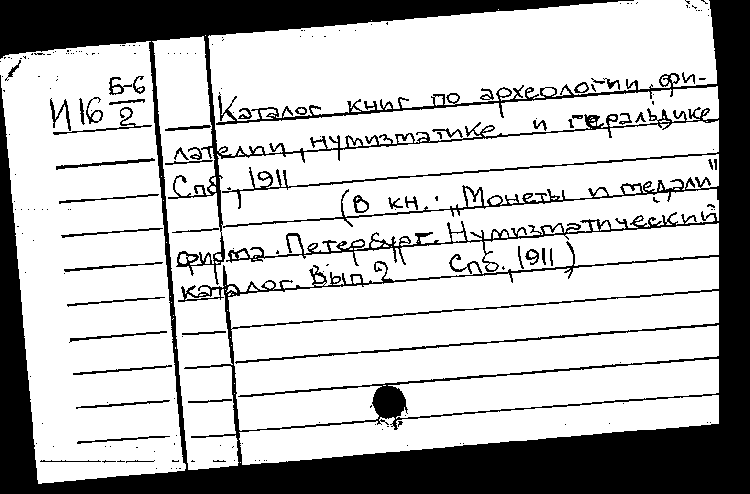 И16 Б-6/2
Каталог книг по археологии, фи-
лателии, нумизматике и геральдике
Спб., 1911
(В кн.: „Монеты и медали"
фирма. Петербург. Нумизматический
каталог. Вып. 2" Спб., 1911)